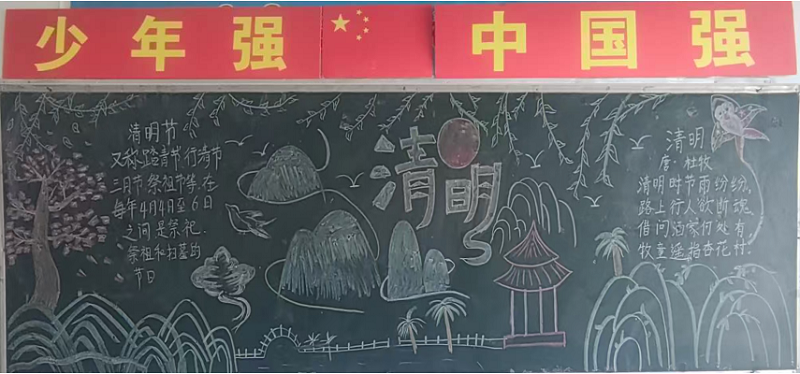 少年强 中国强
清明节
又称踏青节行清节
三月节祭祖节等,在
每年4月4日至6日
之间是祭祀
祭祖和扫墓的
节日
清明
清明
唐·杜牧
清明时节雨纷纷,
路上行人欲断魂.
借问酒家何处有,
牧童遥指杏花村.